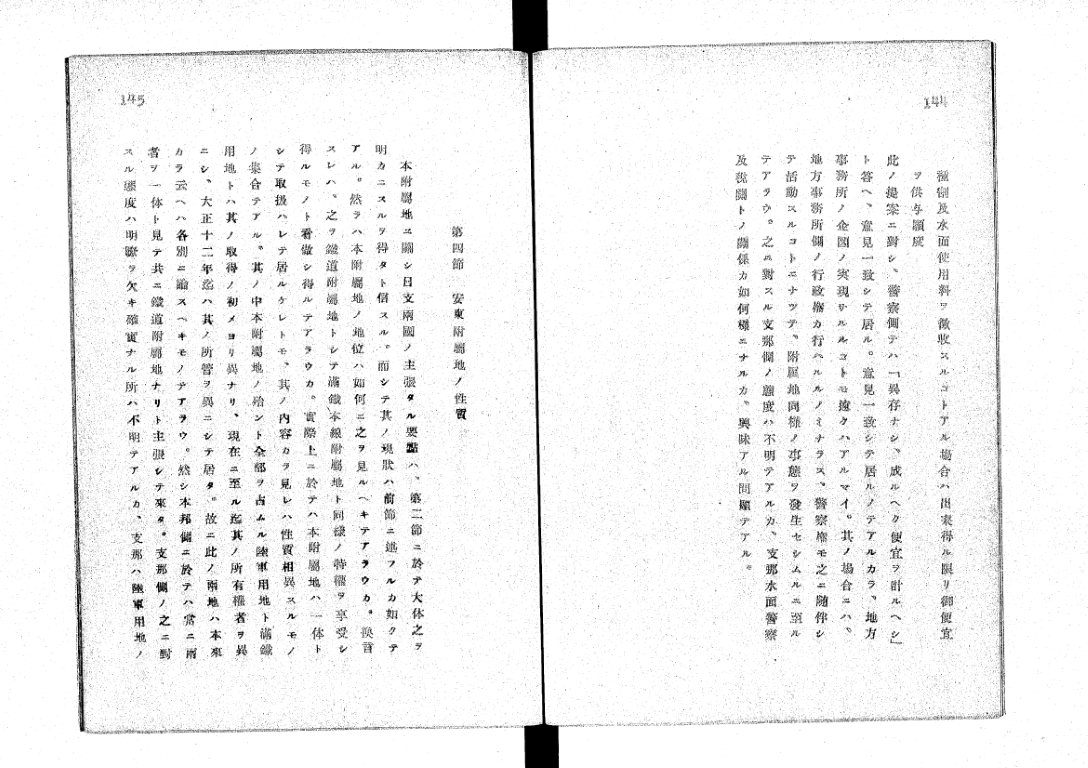 144
種制及水面使用料ヲ徴收スルコトアル場合ハ出來得ル限リ御便宜
ヲ供与願度
此ノ提案ニ對シ、警察側テハ「異存ナシ、成ルヘク便宜ヲ計ルヘシ」
ト答ヘ、意見一致シテ居ル。意見一致シテ居ルノテアルカラ、地方
事務所ノ企圖ノ実現サルルコトモ遠クハアルマイ。其ノ場合ニハ、
地方事務所側ノ行政權カ行ヘルルノミナラス、警察權モ之ニ隨伴シ
テ活動スルコトニナツテ、附属地同様ノ事態ヲ發生セシムルニ至ル
テアラウ。之ニ對スル支那側ノ態度ハ不明テアルカ、支那水面警察
及税關トノ關係カ如何樣ニナルカ。興味アル問題テアル。
145
第四節 安東附屬地ノ性質
本附屬地ニ關シ日支兩國ノ主張タル要點ハ、第二節ニ於テ大体之ヲ
明カニスルヲ得タト信スル。而シテ其ノ現狀ハ前節ニ述フルカ如クテ
アル。然ラハ本附屬地ノ地位ハ如何ニ之ヲ見ルヘキテアラウカ。換言
スレハ、之ヲ鐵道附屬地トシテ滿鐵本線附屬地ト同様ノ特權ヲ享受シ
得ルモノト看做シ得ルテアラウカ。實際上ニ於テハ本附屬地ハ一体ト
シテ取扱ハレテ居ルケレトモ、其ノ内容カラ見レハ性質相異スルモノ
ノ集合テアル。其ノ中本附屬地ノ殆ント全部ヲ占ムル陸軍用地ト滿鐵
用地トハ其ノ取得ノ初メヨリ異ナリ、現在ニ至ル迄其ノ所有權者ヲ異
ニシ、大正十二年迄ハ其ノ所管ヲ異ニシテ居タ。故ニ此ノ兩地ハ本來
カラ云ヘハ各別ニ論スヘキモノテアラウ。然シ本邦側ニ於テハ常ニ兩
者ヲ一体ト見テ共ニ鐵道附屬地ナリト主張シテ來タ。支那側ノ之ニ對
スル態度ハ明瞭ヲ欠キ確實ナル所ハ不明テアルカ、支那ハ陸軍用地ノ